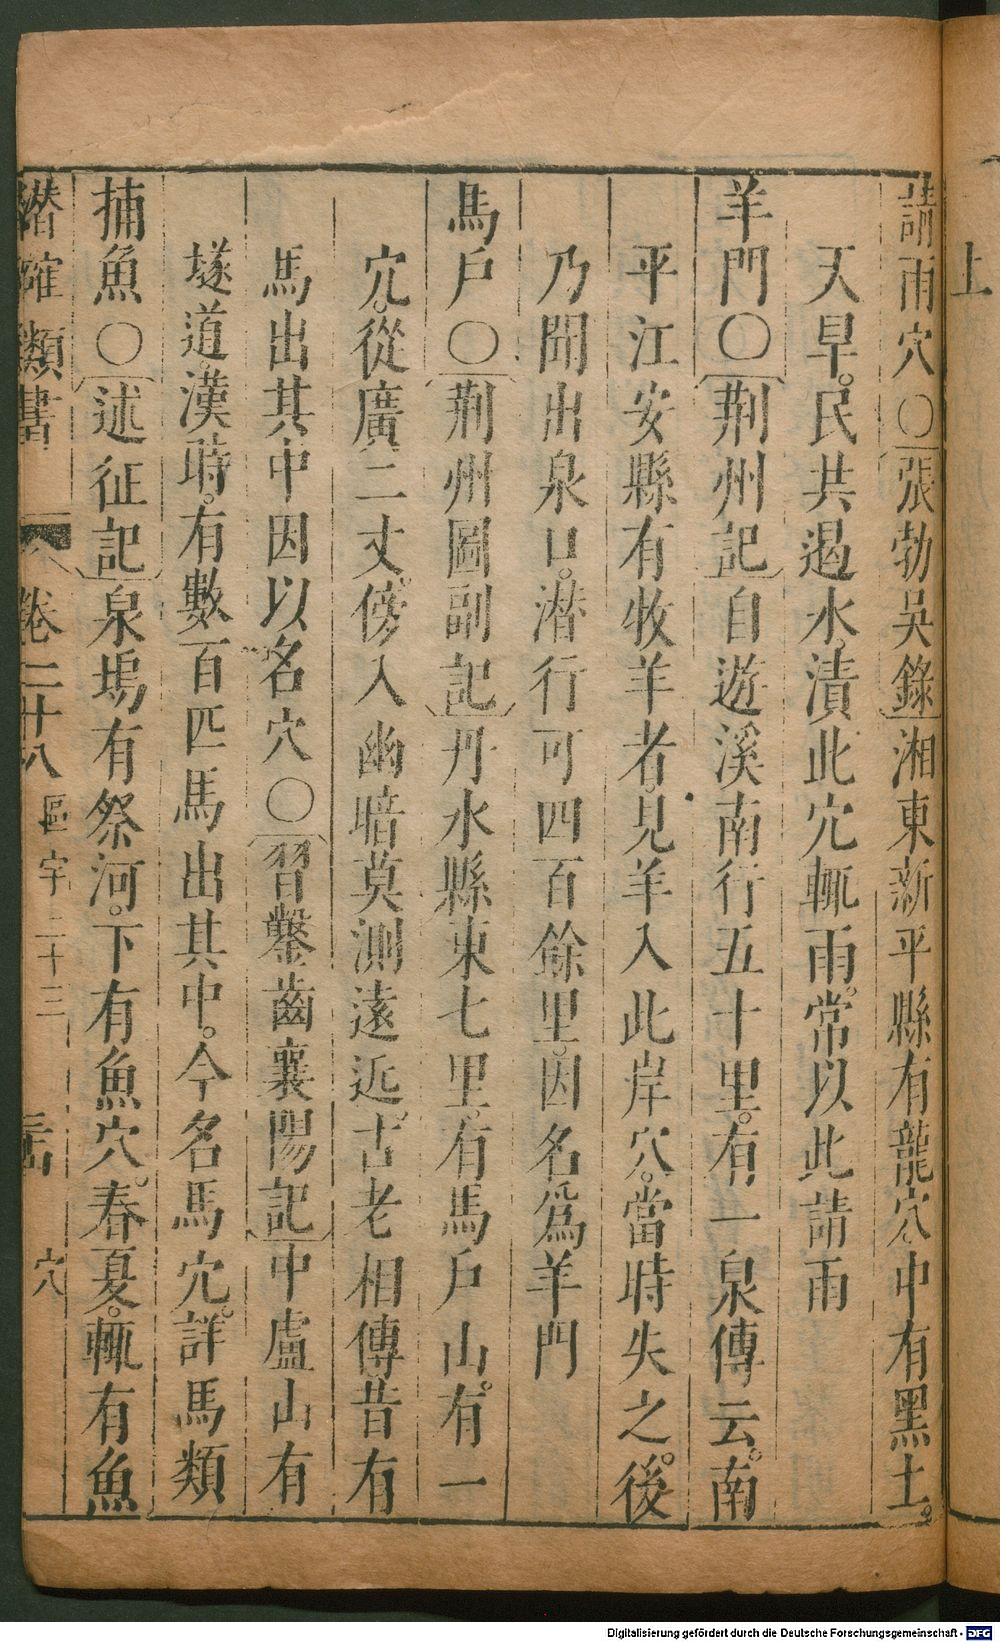 上
請雨穴○張勃吳錄湘東新平縣有龍穴中有黑土。
天旱。民共遏水。漬此穴輒雨。常以此請雨
羊門○荆州記自遊溪南行五十里。有一泉傳云。南
平江安縣有牧羊者。見羊入此岸穴。當時失之。後
乃聞出泉口。潛行可四百餘里。因名爲羊門
馬戶○荆州圖副記丹水縣東七里。有馬戶山。有一
穴。從廣二丈。傍入幽暗莫測遠近。古老相傳昔有
馬出其中因以名穴○習鑿齒襄陽記中盧山有
墜道。漢時。有數百匹馬出其中。今名馬穴。詳馬類
捕魚○述征記泉塢有祭河。下有魚穴。春夏。輒有魚
潛確類書 卷二十八 區宇二十三 穴
Digitalisierung gefördert durch die Deutsche Forschungsgemeinschaft - DFG